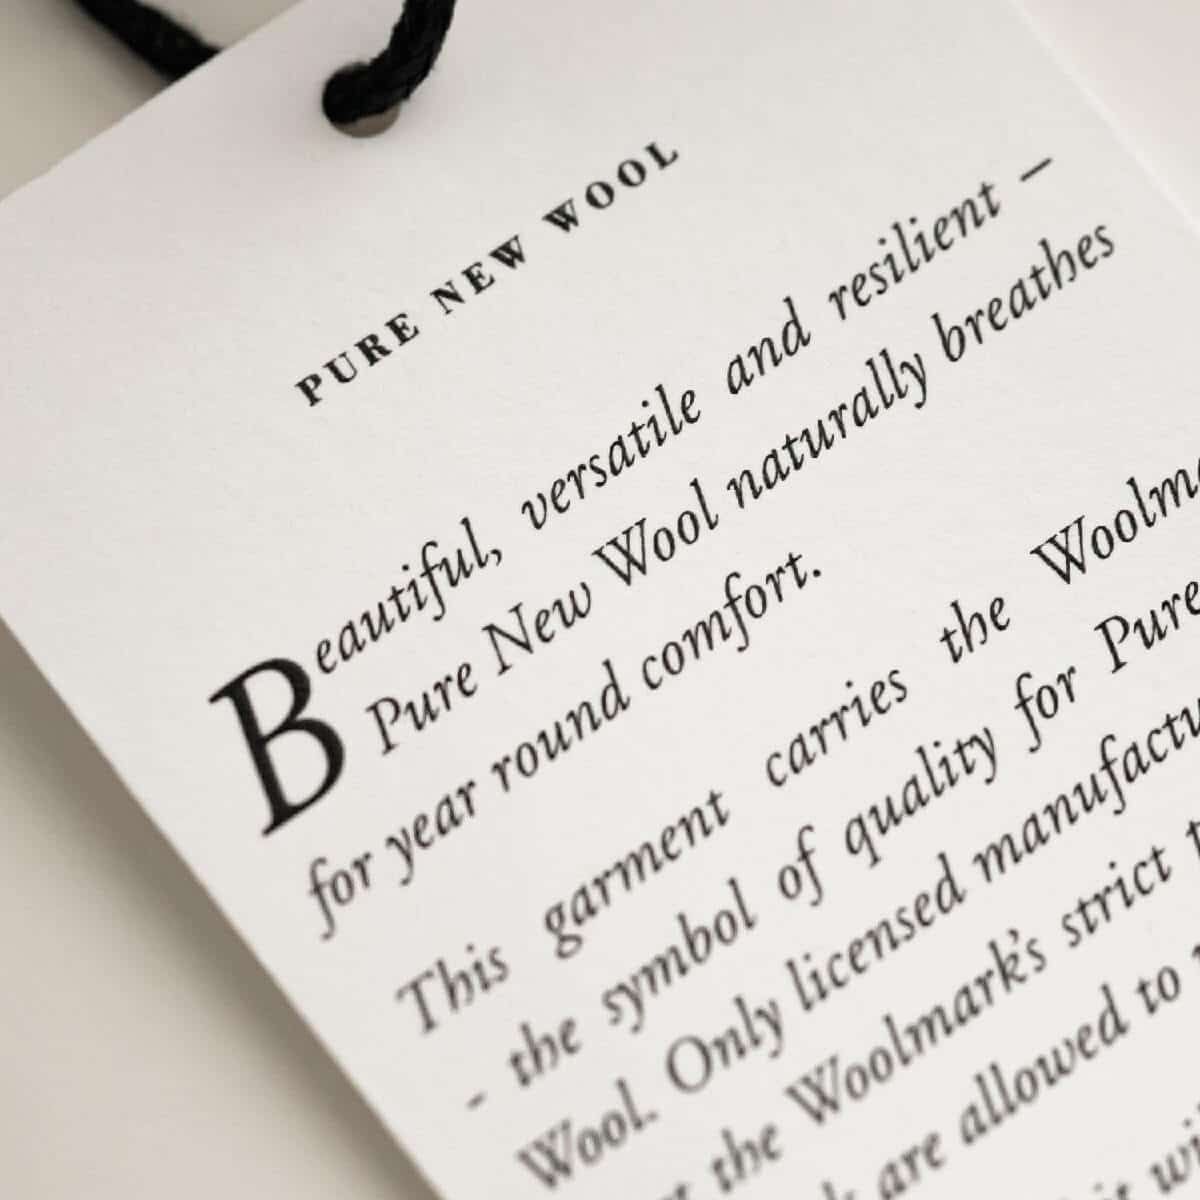 PURE NEW WOOL
Beautiful, versatile and resilient –
Pure New Wool naturally breathes
for year round comfort.
This garment carries the
- the symbol of quality for Pure
Wool. Only licensed
the Woolmark's strict
are allowed to